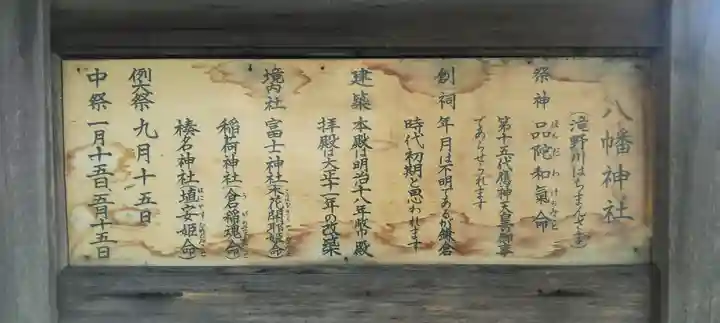 八幡神社
(滝野川はちまんさま)
祭神 品陀和氣命
ほんだわけのみこと
第十五代應神天皇の御事
であらせられます
創祠 年月は不明であるが鎌倉
時代初期と思われます
建築 本殿は明治十八年弊殿
拝殿は大正十一年の改築
境内社 富士神社(木花開耶姫命)
稲荷神社(倉稲魂命)
榛名神社(埴安姫命)
例大祭 九月十五日
中祭 一月十五日五月十五日